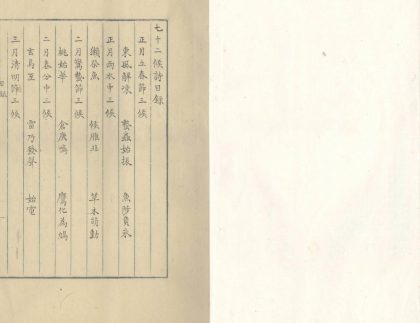 七十二候詩目錄
正月立春節三候
東風解凍 蟄蟲始振 魚陟負氷
正月雨水中三候
獺祭魚 候雁北 草木萌動
二月驚蟄節三候
桃始華 倉庚鳴 鷹化為鳩
二月春分中三候
玄鳥至 雷乃發聲 始電
三月清明節三候